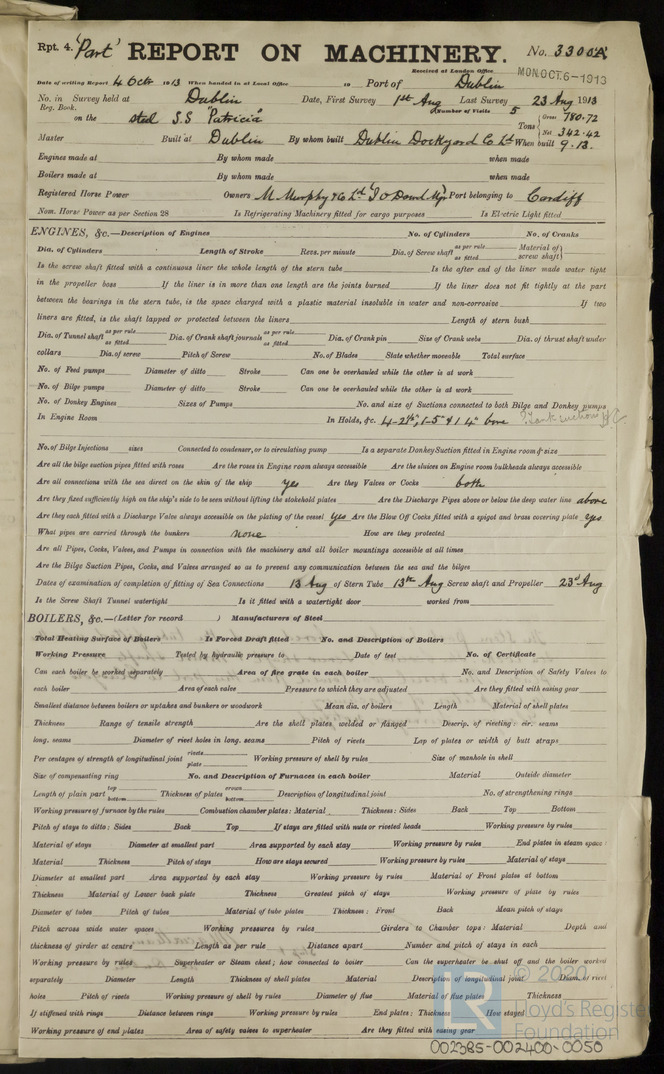 Rpt. 4. 'Part' REPORT ON MACHINERY. No. 3300A
Received at London Office MON. OCT. 6 - 1913
Date of writing Report 4 Octr 1913 When handed in at Local Office 19 Port of Dublin
No. in Reg. Book. Survey held at Dublin Date, First Survey 1st Aug Last Survey 23 Aug 1913
Number of Visits 5
on the steel S.S "Patricia" Tons { Gross 780.72 Net 342.42
Master Built at Dublin By whom built Dublin Dockyard Co Ld When built 9.13.
Engines made at By whom made when made
Boilers made at By whom made when made
Registered Horse Power Owners M. Murphy & Co Ld Port belonging to Cardiff
Nom. Horse Power as per Section 28 Is Refrigerating Machinery fitted for cargo purposes Is Electric Light fitted
ENGINES, &c.—Description of Engines No. of Cylinders No. of Cranks
Dia. of Cylinders Length of Stroke Revs. per minute Dia. of Screw shaft as per rule as fitted Material of screw shaft }
Is the screw shaft fitted with a continuous liner the whole length of the stern tube Is the after end of the liner made water tight
in the propeller boss If the liner is in more than one length are the joints burned If the liner does not fit tightly at the part
between the bearings in the stern tube, is the space charged with a plastic material insoluble in water and non-corrosive If two
liners are fitted, is the shaft lapped or protected between the liners Length of stern bush
Dia. of Tunnel shaft as per rule as fitted Dia. of Crank shaft journals as per rule as fitted Dia. of Crank pin Size of Crank webs Dia. of thrust shaft under
collars Dia. of screw Pitch of Screw No. of Blades State whether moveable Total surface
No. of Feed pumps Diameter of ditto Stroke Can one be overhauled while the other is at work
No. of Bilge pumps Diameter of ditto Stroke Can one be overhauled while the other is at work
No. of Donkey Engines Sizes of Pumps No. and size of Suctions connected to both Bilge and Donkey pumps
In Engine Room In Holds, &c. 4-2½", 1-5" & 1 4" bore
No. of Bilge Injections sizes Connected to condenser, or to circulating pump Is a separate Donkey Suction fitted in Engine room & size
Are all the bilge suction pipes fitted with roses Are the roses in Engine room always accessible Are the sluices on Engine room bulkheads always accessible
Are all connections with the sea direct on the skin of the ship yes Are they Valves or Cocks both
Are they fixed sufficiently high on the ship's side to be seen without lifting the stokehold plates Are the Discharge Pipes above or below the deep water line above
Are they each fitted with a Discharge Valve always accessible on the plating of the vessel yes Are the Blow Off Cocks fitted with a spigot and brass covering plate yes
What pipes are carried through the bunkers none How are they protected
Are all Pipes, Cocks, Valves, and Pumps in connection with the machinery and all boiler mountings accessible at all times
Are the Bilge Suction Pipes, Cocks, and Valves arranged so as to prevent any communication between the sea and the bilges
Dates of examination of completion of fitting of Sea Connections 13 Aug of Stern Tube 13th Aug Screw shaft and Propeller 23d Aug
Is the Screw Shaft Tunnel watertight Is it fitted with a watertight door worked from
BOILERS, &c.—(Letter for record ) Manufacturers of Steel
Total Heating Surface of Boilers Is Forced Draft fitted No. and Description of Boilers
Working Pressure Tested by hydraulic pressure to Date of test No. of Certificate
Can each boiler be worked separately Area of fire grate in each boiler No. and Description of Safety Valves to
each boiler Area of each valve Pressure to which they are adjusted Are they fitted with easing gear
Smallest distance between boilers or uptakes and bunkers or woodwork Mean dia. of boilers Length Material of shell plates
Thickness Range of tensile strength Are the shell plates welded or flanged Descrip. of riveting: cir. seams
long. seams Diameter of rivet holes in long. seams Pitch of rivets Lap of plates or width of butt straps
Per centages of strength of longitudinal joint rivets plate Working pressure of shell by rules Size of manhole in shell
Size of compensating ring No. and Description of Furnaces in each boiler Material Outside diameter
Length of plain part top bottom Thickness of plates crown bottom Description of longitudinal joint No. of strengthening rings
Working pressure of furnace by the rules Combustion chamber plates: Material Thickness: Sides Back Top Bottom
Pitch of stays to ditto: Sides Back Top If stays are fitted with nuts or riveted heads Working pressure by rules
Material of stays Diameter at smallest part Area supported by each stay Working pressure by rules End plates in steam space:
Material Thickness Pitch of stays How are stays secured Working pressure by rules Material of stays
Diameter at smallest part Area supported by each stay Working pressure by rules Material of Front plates at bottom
Thickness Material of Lower back plate Thickness Greatest pitch of stays Working pressure of plate by rules
Diameter of tubes Pitch of tubes Material of tube plates Thickness: Front Back Mean pitch of stays
Pitch across wide water spaces Working pressures by rules Girders to Chamber tops: Material Depth and
thickness of girder at centre Length as per rule Distance apart Number and pitch of stays in each
Working pressure by rules Superheater or Steam chest; how connected to boiler Can the superheater be shut off and the boiler worked
separately Diameter Length Thickness of shell plates Material Description of longitudinal joint Diam. of rivet
holes Pitch of rivets Working pressure of shell by rules Diameter of flue Material of flue plates Thickness
If stiffened with rings Distance between rings Working pressure by rules End plates: Thickness How stayed
Working pressure of end plates Area of safety valves to superheater Are they fitted with easing gear
© 2020
Lloyd's Register
Foundation
002385-002400-0050